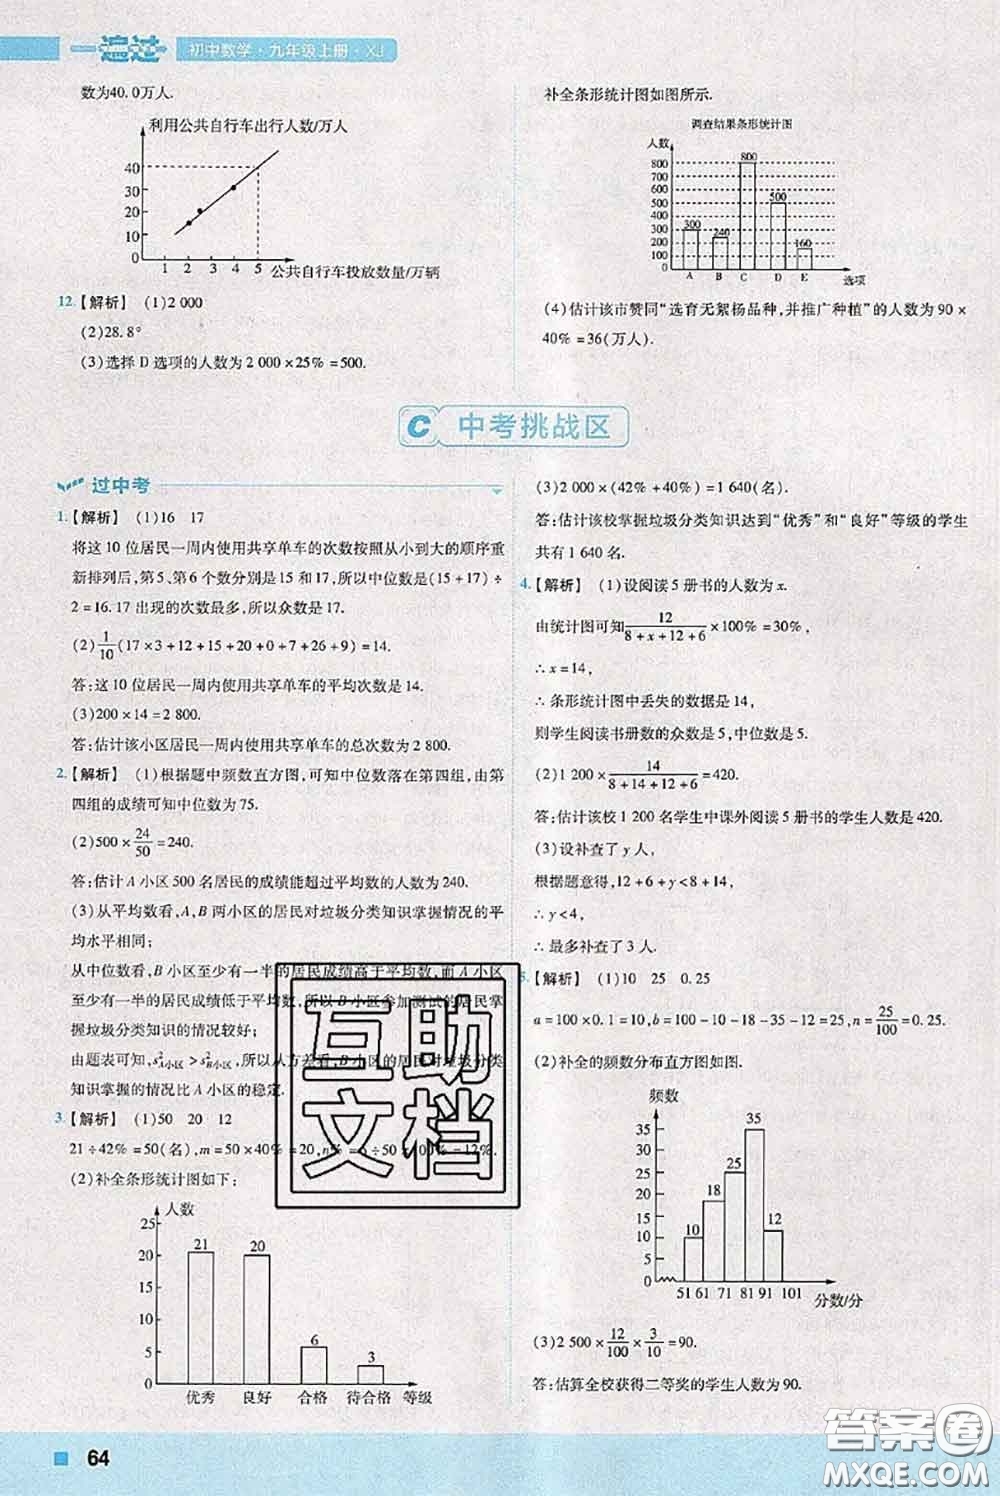 一遍过 初中数学·九年级上册·XJ
数为40.0万人.
利用公共自行车出行人数/万人
40
30
20
10
0
1 2 3 4 5 公共自行车投放数量/万辆
12.【解析】 (1)2 000
(2)28.8°
(3)选择 D 选项的人数为 2 000×25%=500.
补全条形统计图如图所示.
调查结果条形统计图
人数
800
700
600
500
400
300
200
100
0
300 240 800 500 160
A B C D E 选项
(4)估计该市赞同“选育无絮杨品种,并推广种植”的人数为 90×
40%=36(万人).
C 中考挑战区
过中考
1.【解析】 (1)16 17
将这 10 位居民一周内使用共享单车的次数按照从小到大的顺序重
新排列后,第 5、第 6 个数分别是 15 和 17,所以中位数是(15+17)÷
2=16. 17 出现的次数最多,所以众数是 17.
(2)1/10(17×3+12+15+20+0+7+26+9)=14.
答:这 10 位居民一周内使用共享单车的平均次数是 14.
(3)200×14=2 800.
答:估计该小区居民一周内使用共享单车的总次数为 2 800.
2.【解析】 (1)根据题中频数直方图,可知中位数落在第四组,由第
四组的成绩可知中位数为 75.
(2)500×24/50=240.
答:估计 A 小区 500 名居民的成绩能超过平均数的人数为 240.
(3)从平均数看,A,B 两小区的居民对垃圾分类知识掌握情况的平
均水平相同;
从中位数看,B 小区至少有一半的居民成绩高于平均数,而 A 小区
至少有一半的居民成绩低于平均数,所以 B 小区参加测试的居民掌
握垃圾分类知识的情况较好;
由题表可知,s²A小区>s²B小区,所以从方差看,B 小区的居民对垃圾分类
知识掌握的情况比 A 小区的稳定.
3.【解析】 (1)50 20 12
21÷42%=50(名),m=50×40%=20,n%=6÷50×100%=12%.
(2)补全条形统计图如下:
人数
25
20
15
10
5
0
21 20 6 3
优秀 良好 合格 待合格 等级
(3)2 000×(42%+40%)=1 640(名).
答:估计该校掌握垃圾分类知识达到“优秀”和“良好”等级的学生
共有 1 640 名.
4.【解析】 (1)设阅读 5 册书的人数为 x.
由统计图可知12/(8+x+12+6)×100%=30%,
∴x=14,
∴条形统计图中丢失的数据是 14,
则学生阅读书册数的众数是 5,中位数是 5.
(2)1 200×14/(8+14+12+6)=420.
答:估计该校 1 200 名学生中课外阅读 5 册书的学生人数是 420.
(3)设补查了 y 人,
根据题意得,12+6+y<8+14,
∴y<4,
∴最多补查了 3 人.
5.【解析】 (1)10 25 0.25
a=100×0.1=10,b=100-10-18-35-12=25,n=25/100=0.25.
(2)补全的频数分布直方图如图.
频数
35
30
25
20
15
10
5
0
10 18 25 35 12
51 61 71 81 91 101
分数/分
(3)2 500×12/100×3/10=90.
答:估算全校获得二等奖的学生人数为 90.
互助
文档
64
答案圈
MXQE.COM